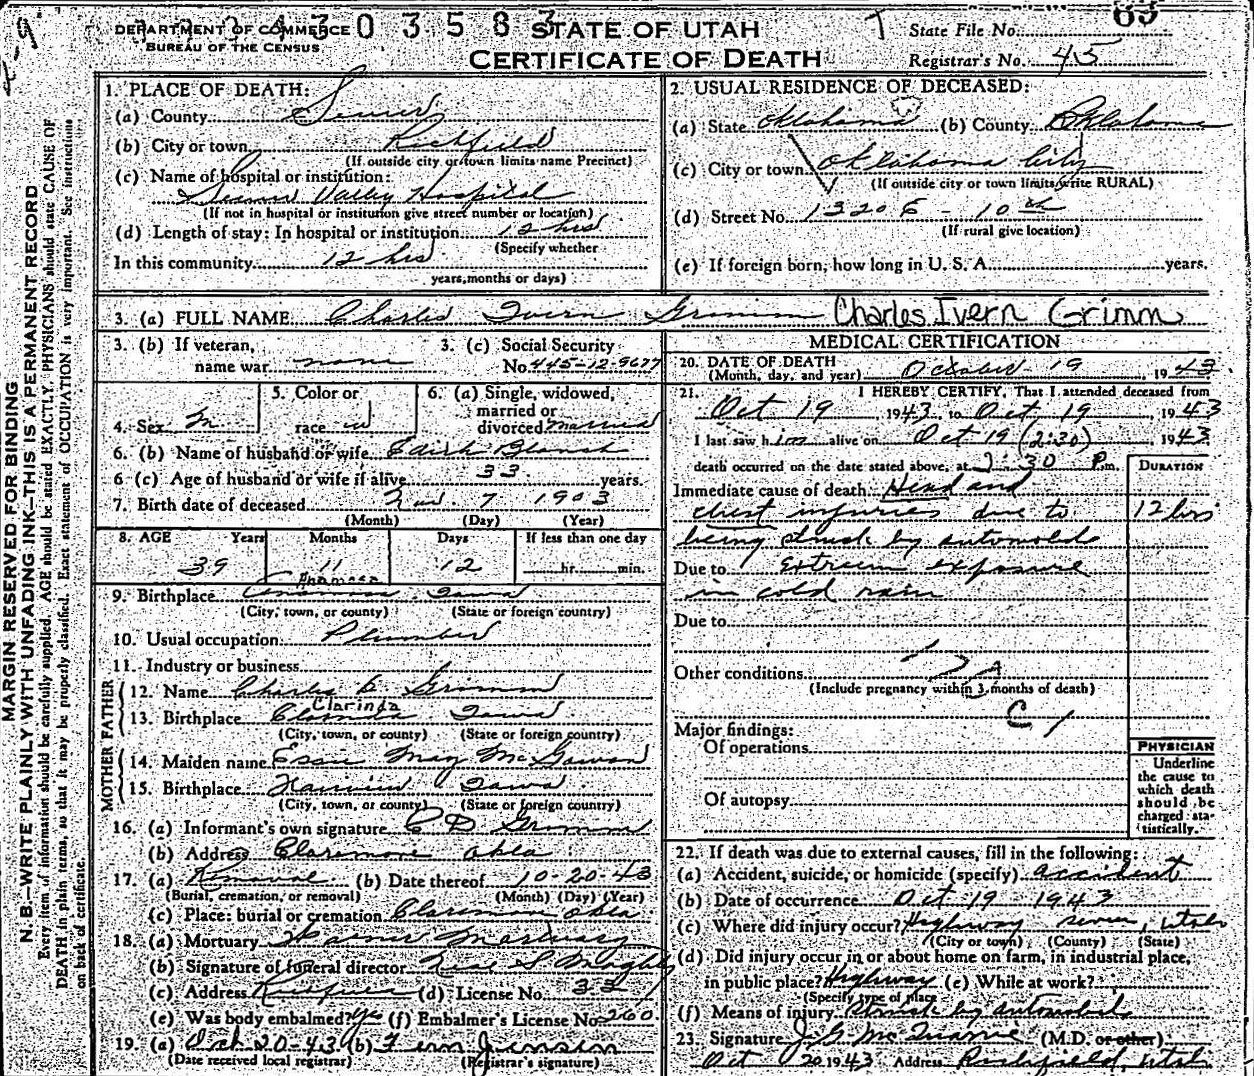 DEPARTMENT OF COMMERCE
BUREAU OF THE CENSUS
3 0 3 5 8 3
STATE OF UTAH
CERTIFICATE OF DEATH
State File No. 65
Registrar's No. 45
MARGIN RESERVED FOR BINDING
N. B.—WRITE PLAINLY WITH UNFADING INK—THIS IS A PERMANENT RECORD
Every item of information should be carefully supplied. AGE should be stated EXACTLY. PHYSICIANS should state CAUSE OF
DEATH in plain terms, so that it may be properly classified. Exact statement of OCCUPATION is very important. See instructions
on back of certificate.
1. PLACE OF DEATH:
(a) County Sevier
(b) City or town Richfield
(If outside city or town limits name Precinct)
(c) Name of hospital or institution:
Sevier Valley Hospital
(If not in hospital or institution give street number or location)
(d) Length of stay: In hospital or institution 12 hrs
(Specify whether
In this community 12 hrs
years, months or days)
2. USUAL RESIDENCE OF DECEASED:
(a) State Oklahoma (b) County Oklahoma
(c) City or town Oklahoma City
(If outside city or town limits write RURAL)
(d) Street No. 1320 E - 10th
(If rural give location)
(e) If foreign born, how long in U. S. A. years.
3. (a) FULL NAME Charles Ivern Grimm Charles Ivern Grimm
3. (b) If veteran, name war none
3. (c) Social Security No. 445-12-9677
4. Sex M
5. Color or race W
6. (a) Single, widowed, married or divorced married
6. (b) Name of husband or wife Edith Blanch
6 (c) Age of husband or wife if alive 33 years.
7. Birth date of deceased Nov. 7 1903
(Month) (Day) (Year)
8. AGE Years Months Days If less than one day
39 11 12 hr. min.
Anamosa
9. Birthplace Anamosa Iowa
(City, town, or county) (State or foreign country)
10. Usual occupation Plumber
11. Industry or business
FATHER
12. Name Charles E. Grimm
Clarinda
13. Birthplace Clarinda Iowa
(City, town, or county) (State or foreign country)
MOTHER
14. Maiden name Essie May McGowan
15. Birthplace Iowa
(City, town, or county) (State or foreign country)
16. (a) Informant's own signature Grimm
(b) Address Claremore Okla
17. (a) Removal (b) Date thereof 10-20-43
(Burial, cremation, or removal) (Month) (Day) (Year)
(c) Place: burial or cremation Claremore Okla
18. (a) Mortuary Mortuary
(b) Signature of funeral director
(c) Address Richfield (d) License No. 33
(e) Was body embalmed? Yes (f) Embalmer's License No. 260
19. (a) Oct 20-43 (b) Fern Jensen
(Date received local registrar) (Registrar's signature)
MEDICAL CERTIFICATION
20. DATE OF DEATH
(Month, day, and year) October 19, 1943
21. I HEREBY CERTIFY, That I attended deceased from
Oct 19, 1943, to Oct 19, 1943
I last saw him alive on Oct 19 (2:30), 1943
death occurred on the date stated above, at 2:30 P.m.
DURATION
Immediate cause of death Head and
chest injuries due to 12 hrs
being struck by automobile
Due to Extreem exposure
in cold rain
Due to
Other conditions
(Include pregnancy within 3 months of death)
C 1
Major findings:
Of operations
Of autopsy
PHYSICIAN
Underline
the cause to
which death
should be
charged sta-
tistically.
22. If death was due to external causes, fill in the following:
(a) Accident, suicide, or homicide (specify) accident
(b) Date of occurrence Oct 19 1943
(c) Where did injury occur? Highway Sevier, Utah
(City or town) (County) (State)
(d) Did injury occur in or about home on farm, in industrial place,
in public place? Highway (e) While at work?
(Specify type of place
(f) Means of injury Struck by automobile
23. Signature J. G. McQuarrie (M.D. or other)
Oct 20 1943 Address Richfield, Utah